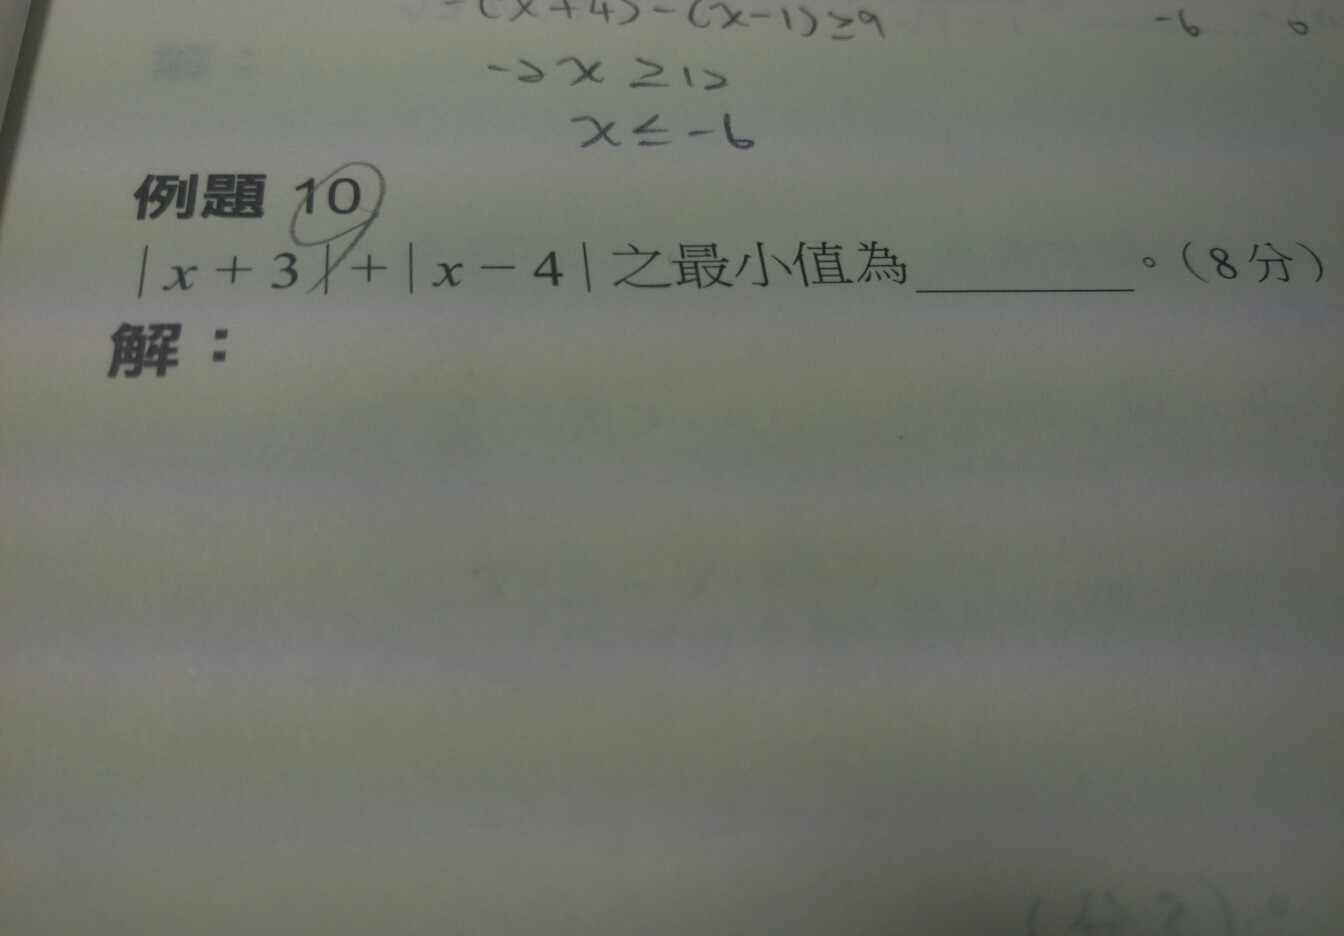 -(x+4)-(x-1)≥9
-6 0
-2x ≥12
x≤-6
例題 10
|x+3|+|x-4|之最小值為________。(8分)
解：